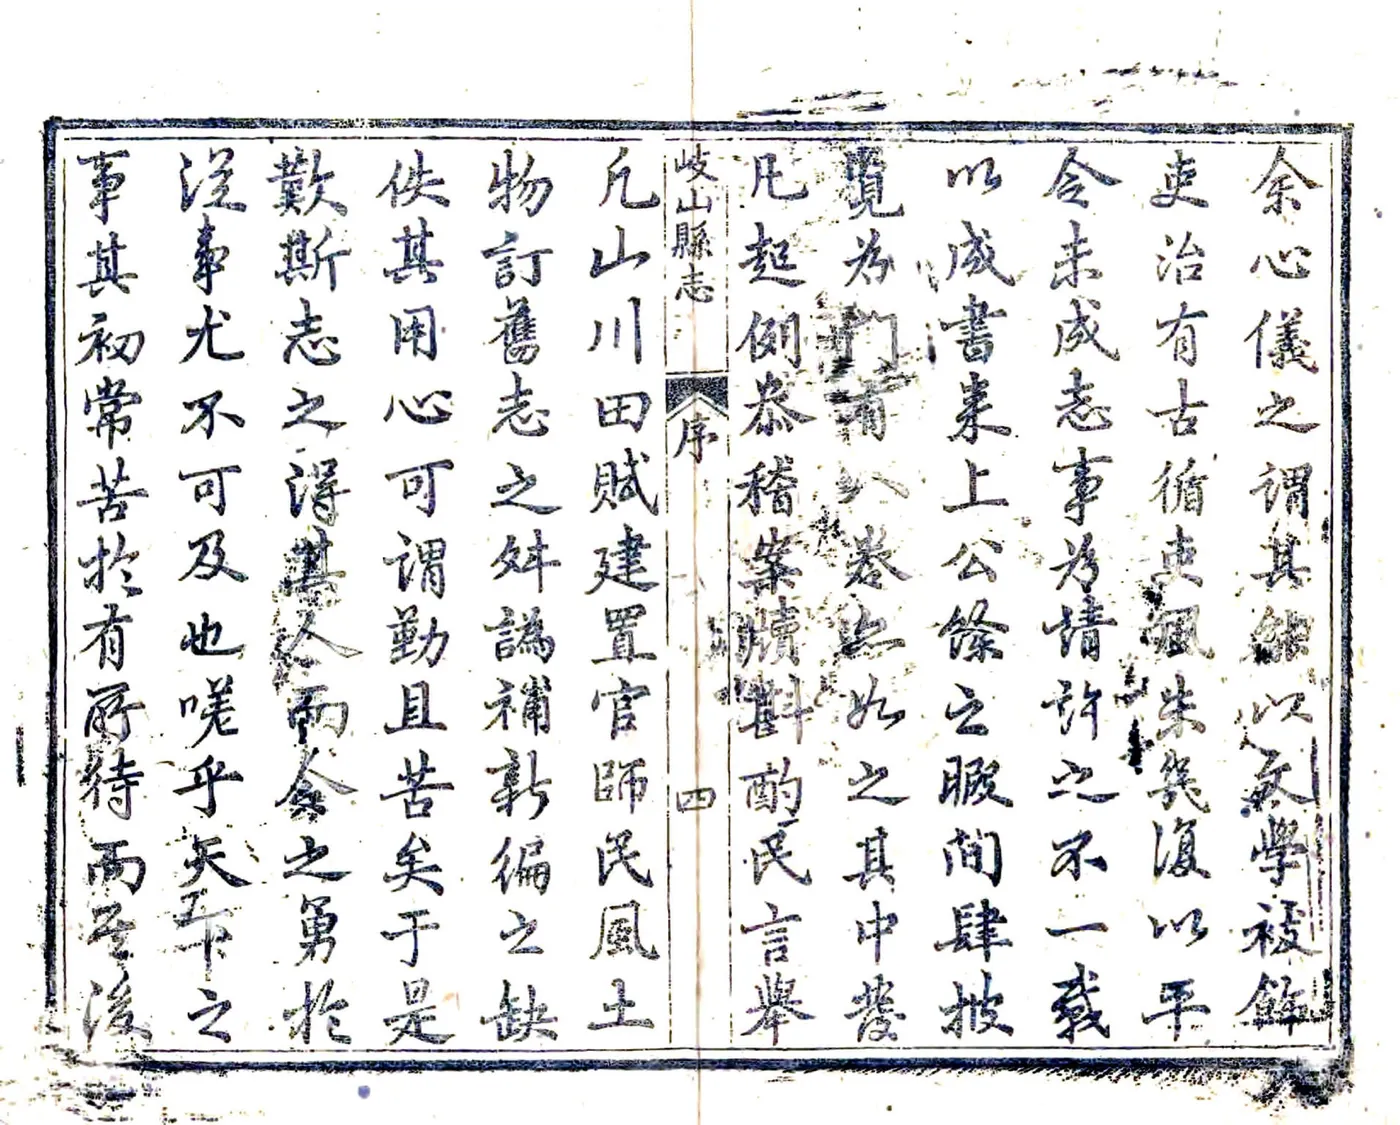 余心儀之謂其能以文學被餙
吏治有古循吏風未幾復以平
令未成志事為請許之不一載
以成書来上公餘之暇間肆披
覧為門有八卷亦如之其中發
凡起例恭稽案牘斟酌民言舉
岐山縣志
序
四
凢山川田賦建置官師民風土
物訂舊志之舛譌補新編之缺
佚其用心可謂勤且苦矣于是
歎斯志之淂其人而令之勇於
從事尤不可及也嗟乎天下之
事其初常苦於有所待而後